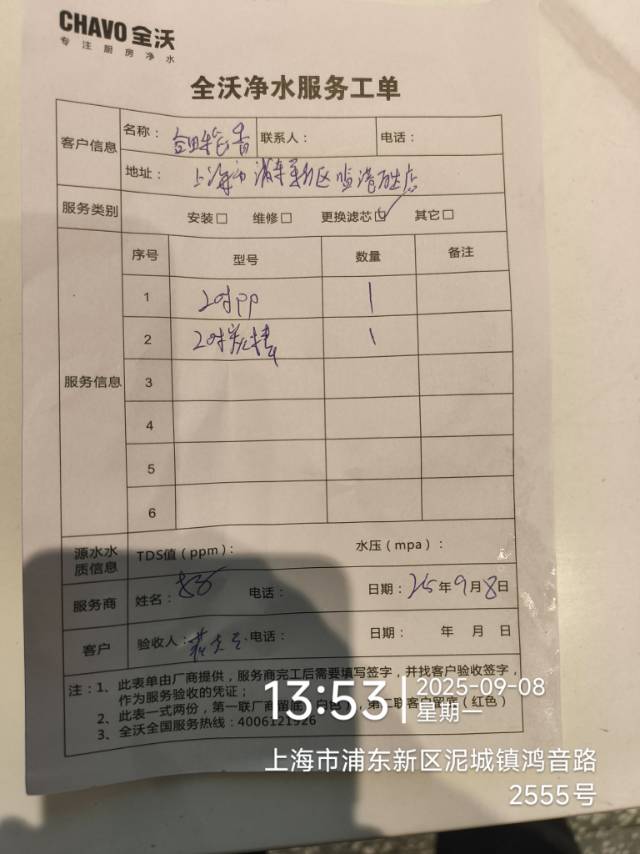 CHAVO 全沃
专注厨房净水
全沃净水服务工单
客户信息 名称： 联系人： 电话：
地址： 上海市浦东新区临港店
服务类别 安装□ 维修□ 更换滤芯☑ 其它□
服务信息 序号 型号 数量 备注
1 20吋PP 1
2 20吋炭棒 1
3
4
5
6
源水水质信息 TDS值（ppm）： 水压（mpa）：
服务商 姓名： 电话： 日期：25年9月8日
客户 验收人： 电话： 日期： 年 月 日
注：1、此表单由厂商提供，服务商完工后需要填写签字，并找客户验收签字，
作为服务验收的凭证；
2、此表一式两份，第一联厂商留底（白色），第二联客户留底（红色）
3、全沃全国服务热线：4006121926
13:53 2025-09-08
星期一
上海市浦东新区泥城镇鸿音路
2555号